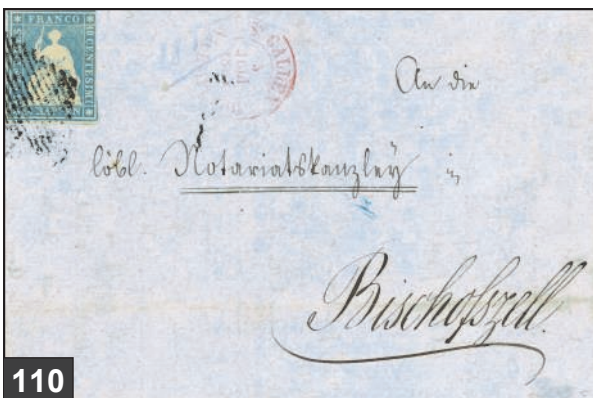 FRANCO
10 CENTESIMI
ST. GALLEN
An die
löbl. Notariatskanzley in
Bischofszell.
110